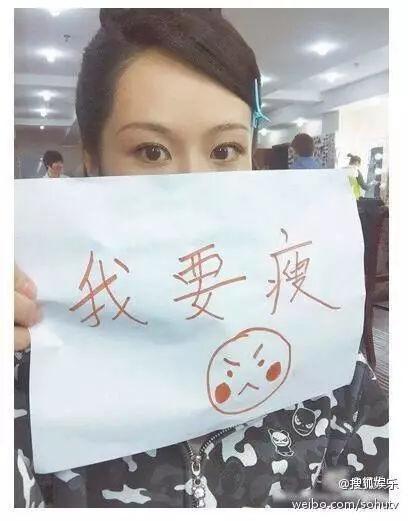 我要瘦
@搜狐娱乐
weibo.com/sohutv